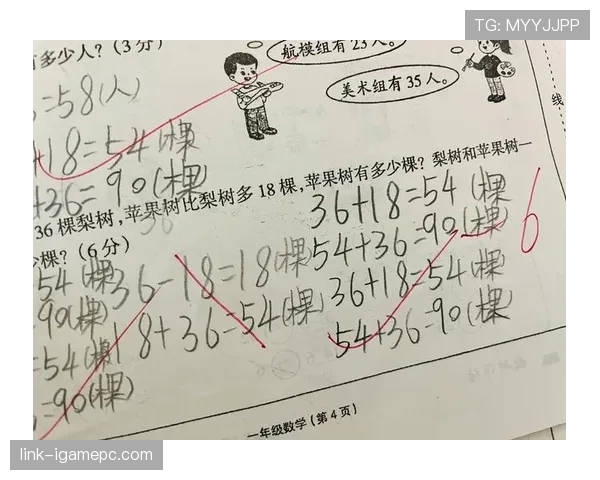 TG: MYYJJPP
有多少人？(3分)
航模组有 23 人。
美术组有 35 人。
=58(人)
+18=54(棵)
+36=90(棵)
线
36 棵梨树，苹果树比梨树多 18 棵，苹果树有多少棵？梨树和苹果树一
少棵？(6分)
36+18=54(棵)
54+36=90(棵)
36+18=54(棵)
54+36=90(棵)
6
36-18=18(棵)
18+36=54(棵)
54(棵)
=90(棵)
=54(棵)
=90(棵)
一年级数学(第4页)
link-igamepc.com